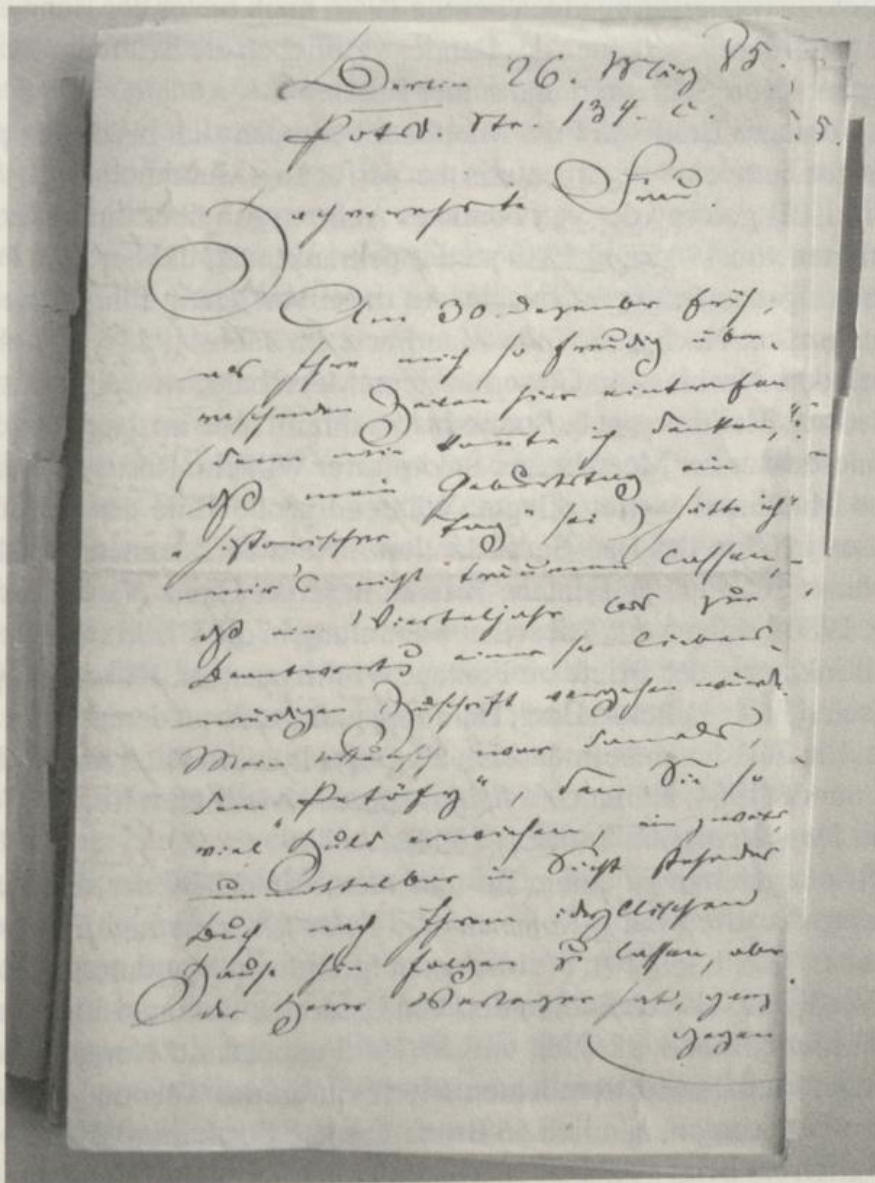 Berlin 26. März 85.
Potsd. Str. 134. c.
Hochverehrte Frau.
Am 30. Dezember früh,
als Ihre mich so freudig über-
raschenden Zeilen hier eintrafen
(denn wie konnte ich denken,
daß mein Geburtstag ein
„historischer Tag" sei) hätte ich
mir's nicht träumen lassen,
daß ein Vierteljahr bis zur
Beantwortg einer so liebens-
würdigen Zuschrift vergehen würde.
Mein Wunsch war damals,
dem „Petöfy", dem Sie so
viel Huld erwiesen, ein zweites
unmittelbar in Sicht stehendes
Buch nach Ihrem idyllischen
Hause hin folgen zu lassen, aber
der Herr Verleger hat, ganz
gegen